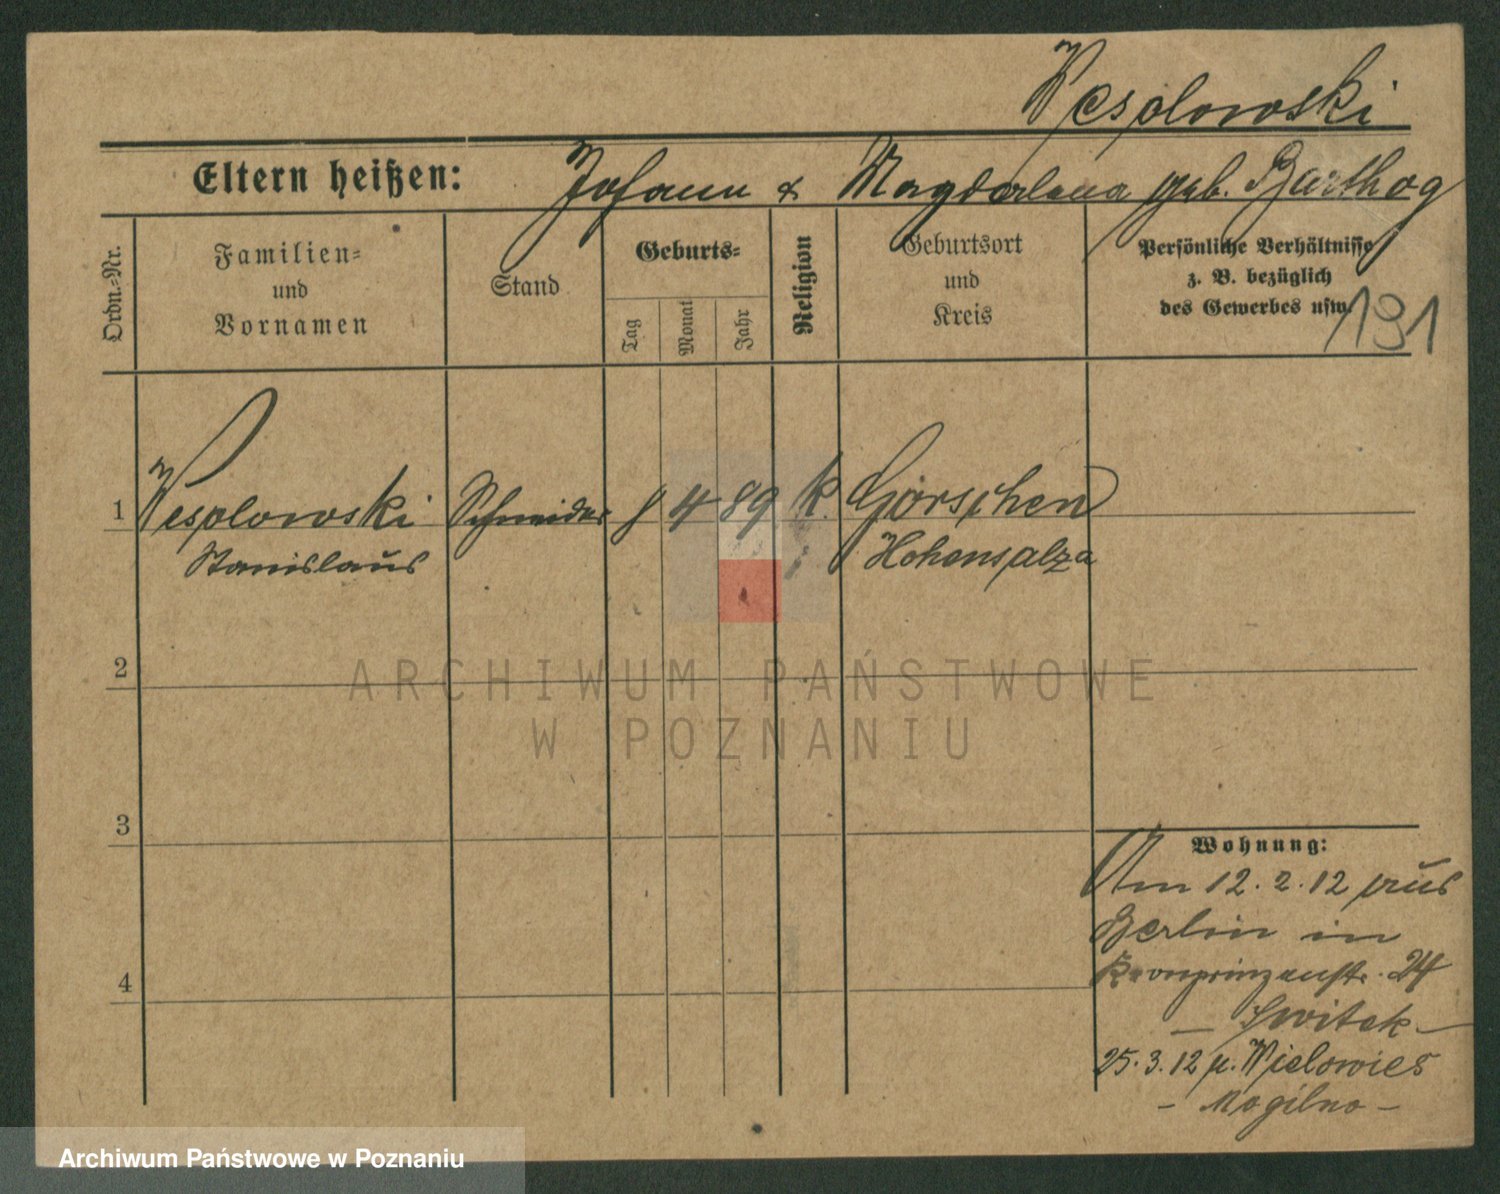 Wesolowski
Eltern heißen: Johann & Magdalena geb. Barthog
Ordn.-Nr.
Familien=
und
Vornamen
Stand
Geburts=
Tag
Monat
Jahr
Religion
Geburtsort
und
Kreis
Persönliche Verhältnisse
z. B. bezüglich
des Gewerbes usw.
191
1 Wesolowski Schneider 8 4 89 k. Görschen
Stanislaus Hohensalza
2
ARCHIWUM PAŃSTWOWE
W POZNANIU
3
Wohnung:
Am 12. 2. 12 aus
Berlin in
Kronprinzenstr. 24
— Switek —
25. 3. 12 n. Wielowies
— Mogilno —
4
Archiwum Państwowe w Poznaniu